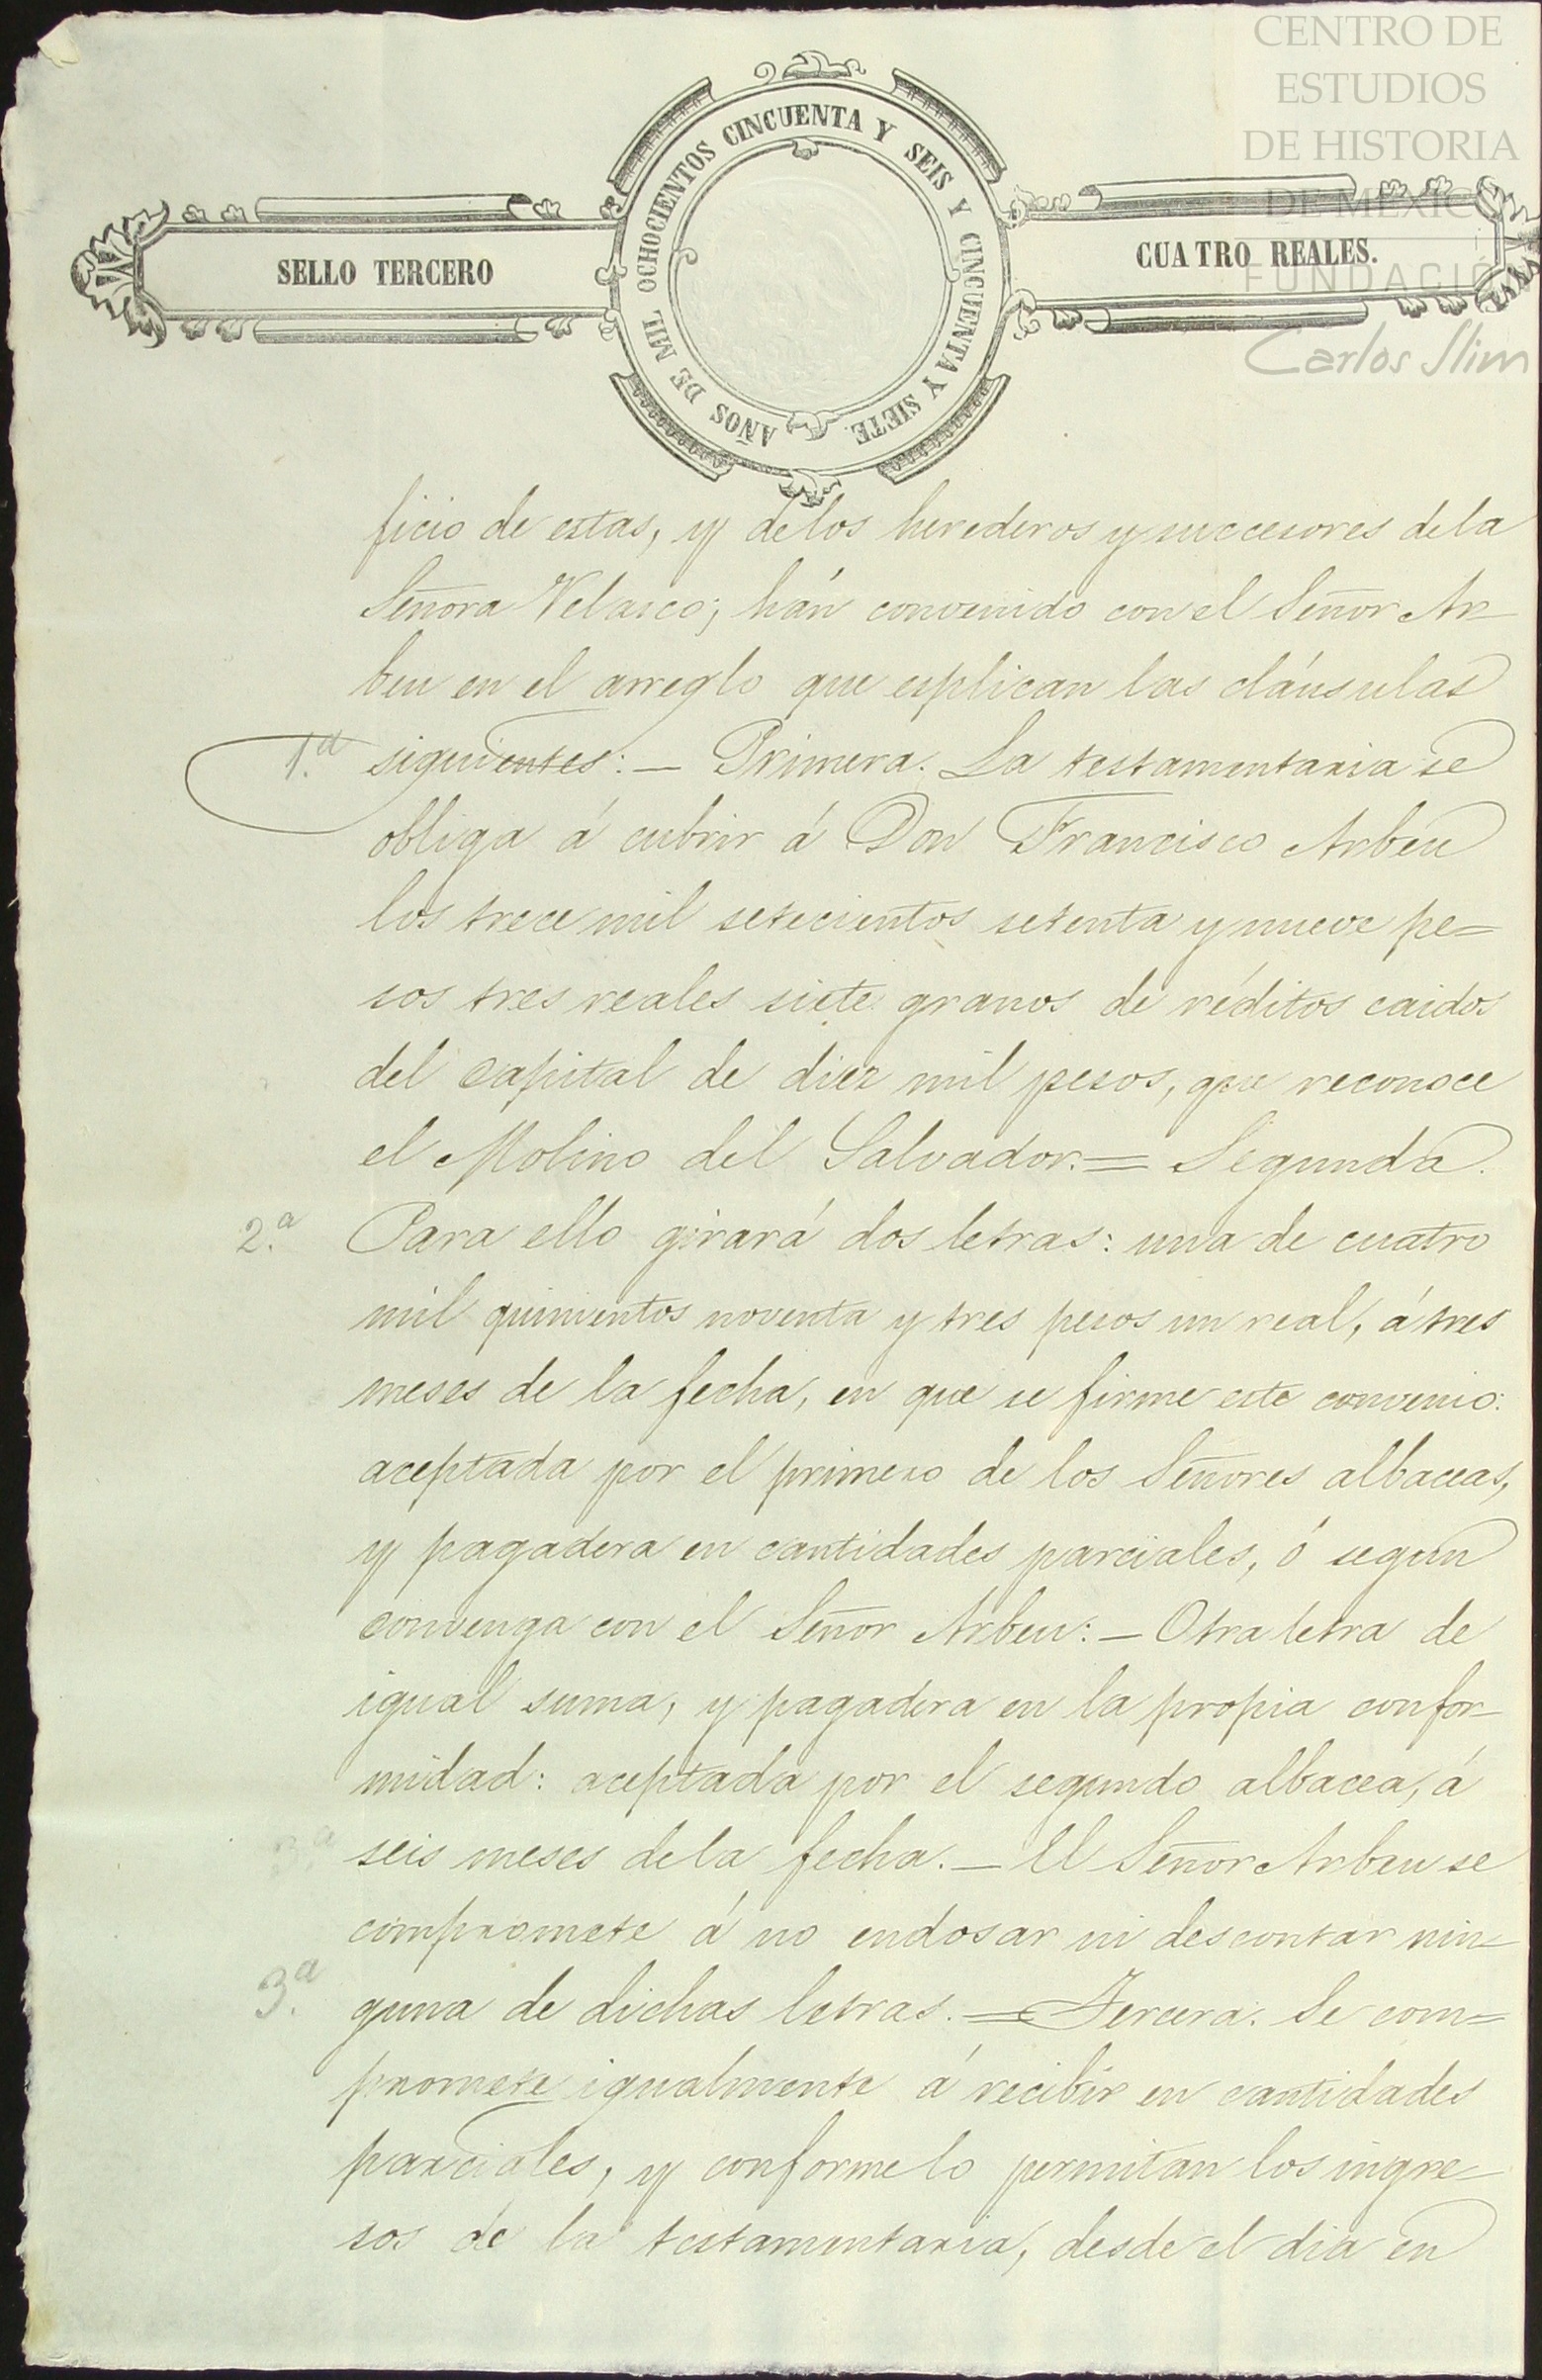 CENTRO DE
ESTUDIOS
DE HISTORIA
DE MÉXICO
FUNDACIÓN
Carlos Slim
SELLO TERCERO
AÑOS DE MIL OCHOCIENTOS CINCUENTA Y SEIS Y CINCUENTA Y SIETE.
CUATRO REALES.
ficio de estas, y de los herederos y succesores de la
Señora Velasco; hán convenido con el Señor Ar-
beu en el arreglo que esplican las cláusulas
1.a siguientes: — Primera. La testamentaria se
obliga á cubrir á Don Francisco Arbeu
los trece mil setecientos setenta y nueve pe=
sos tres reales siete granos de réditos caidos
del capital de diez mil pesos, que reconoce
el Molino del Salvador. = Segunda.
2.a Para ello girará dos letras: una de cuatro
mil quinientos noventa y tres pesos un real, á tres
meses de la fecha, en que se firme este convenio:
aceptada por el primero de los Señores albaceas,
y pagadera en cantidades parciales, ó segun
convenga con el Señor Arbeu: — Otra letra de
igual suma, y pagadera en la propia confor-
midad: aceptada por el segundo albacea, á
3.a seis meses de la fecha. — El Señor Arbeu se
compromete á no endosar ni descontar nin=
3.a guna de dichas letras. = Tercera. Se com=
promete igualmente á recibir en cantidades
parciales, y conforme lo permitan los ingre-
sos de la testamentaria, desde el dia en